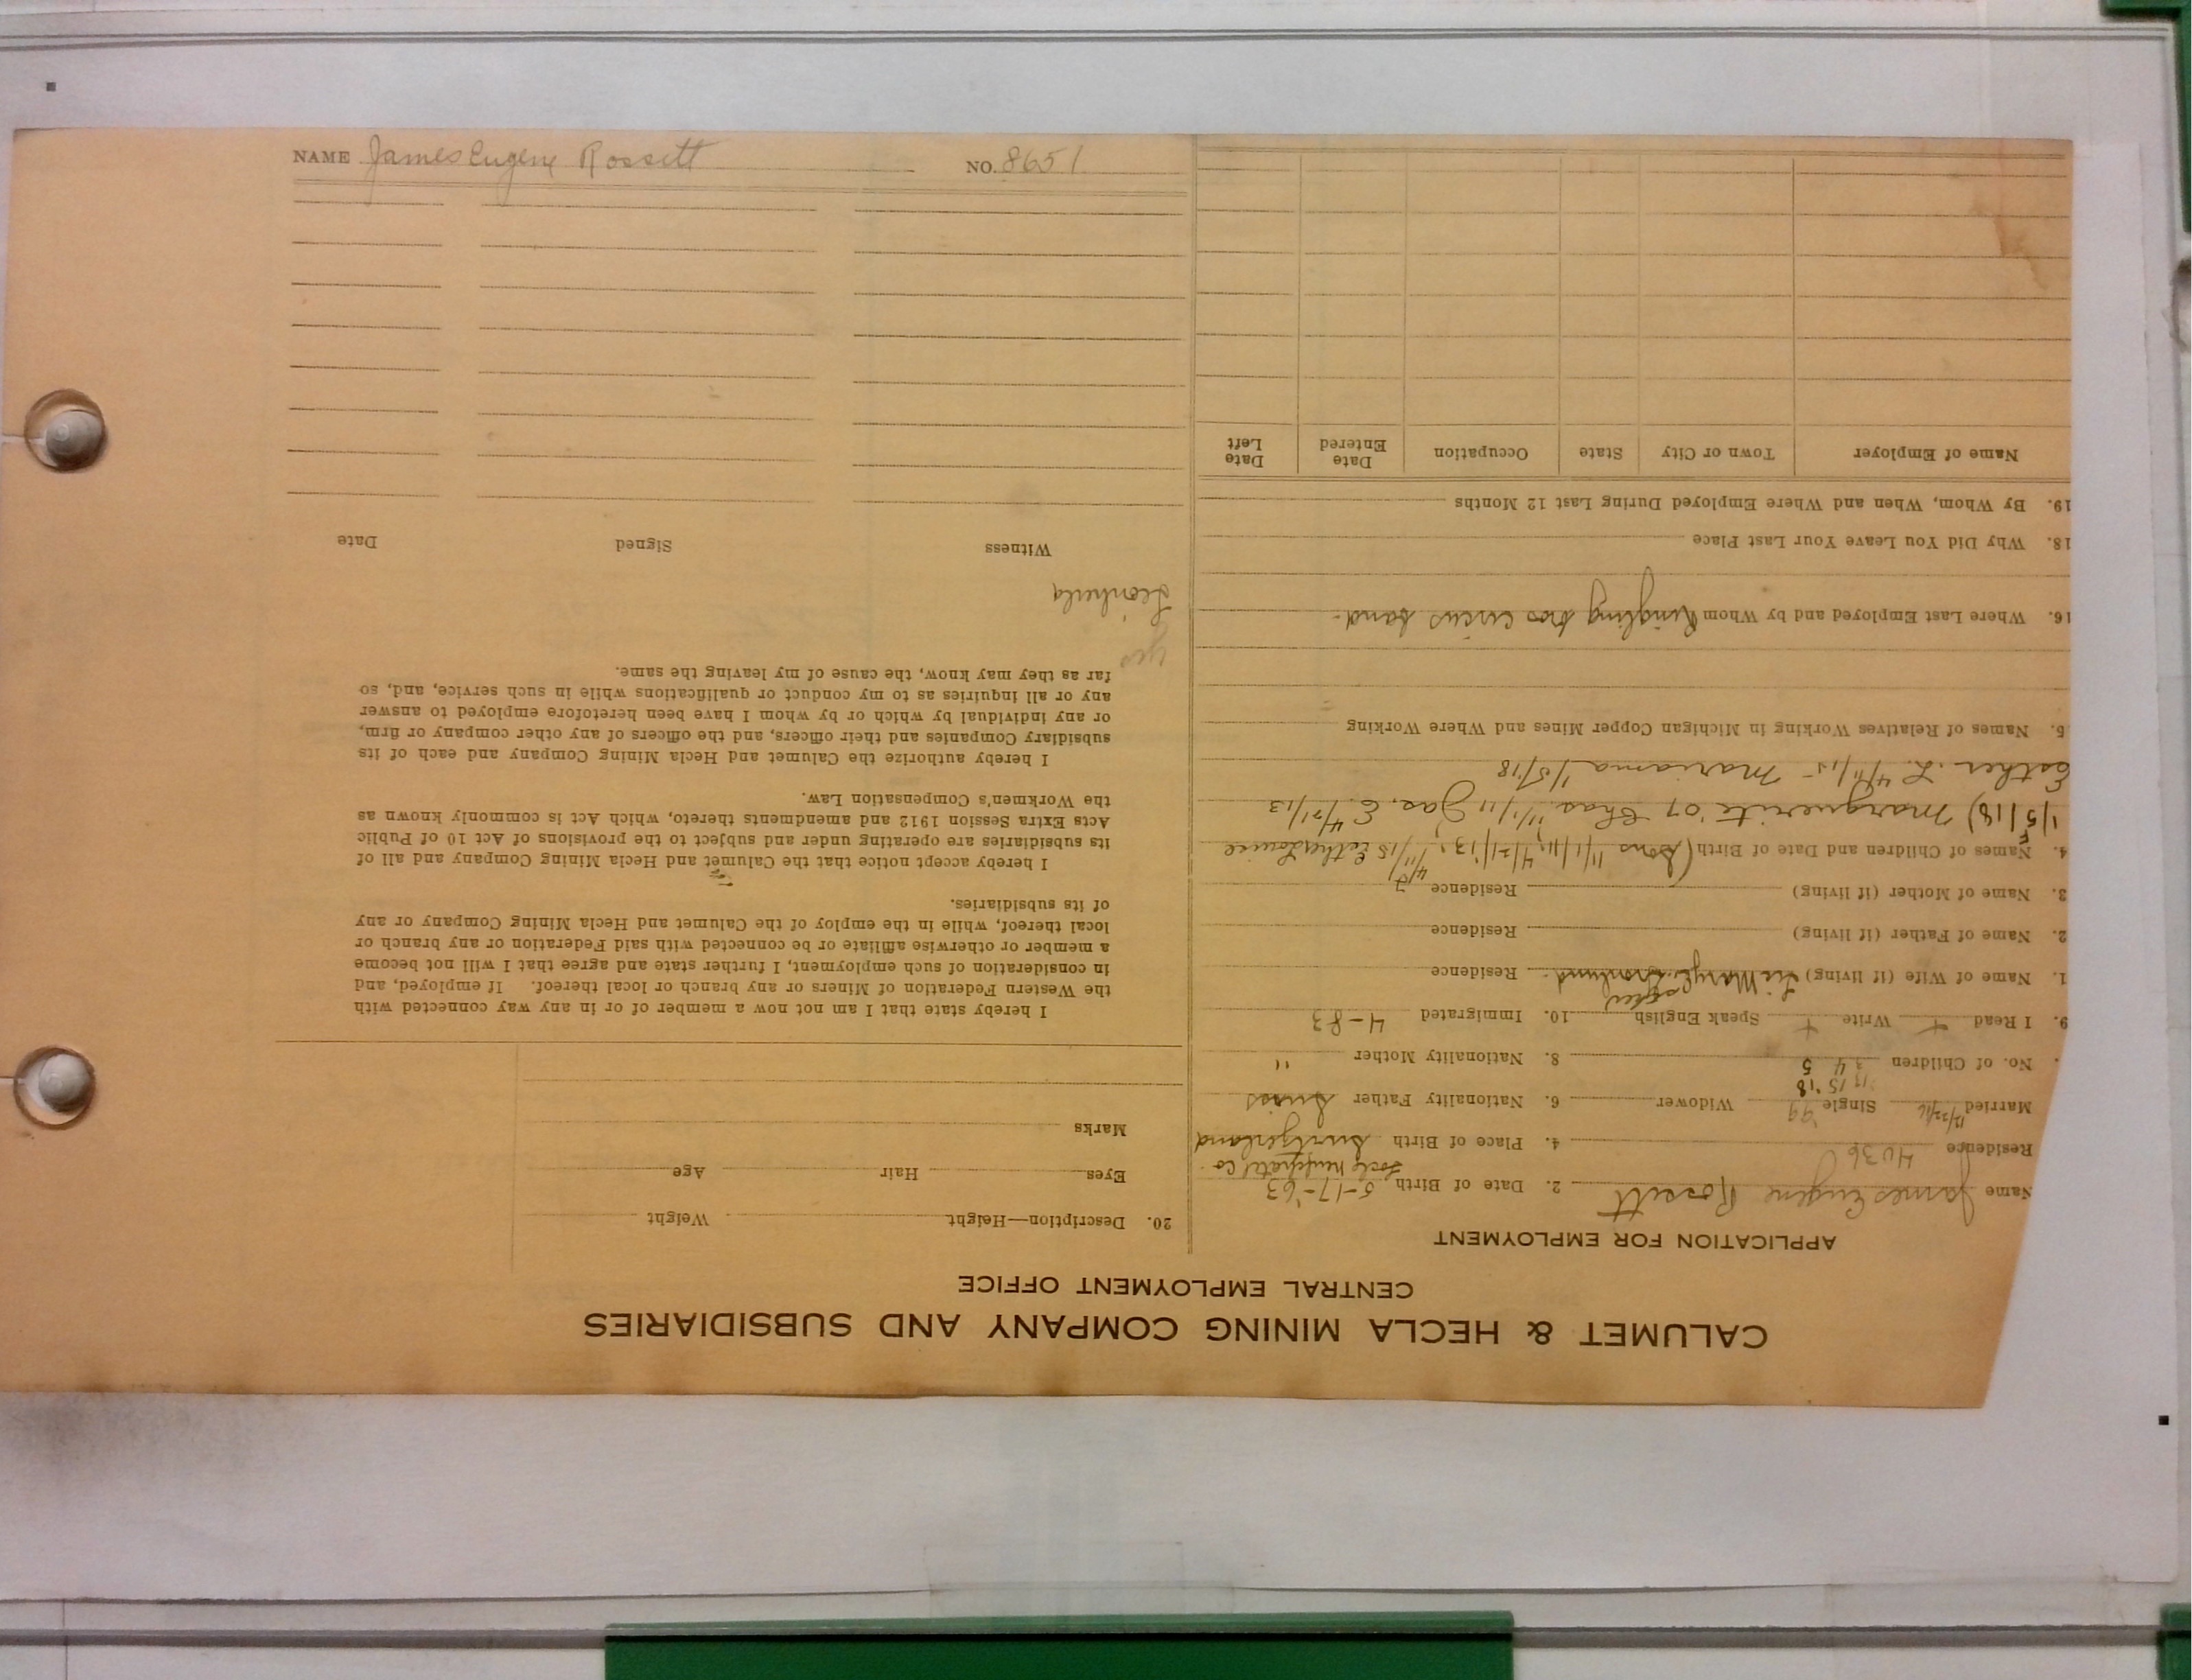 NAME James Eugene Rossett NO. 8651
CALUMET & HECLA MINING COMPANY AND SUBSIDIARIES
CENTRAL EMPLOYMENT OFFICE
APPLICATION FOR EMPLOYMENT
Name James Eugene Rossett 2. Date of Birth 5-17-'63
Residence 4036 4. Place of Birth Switzerland
Married 12/22/16 Single '99 Widower 6. Nationality Father Swiss
'13 '15 '18
. No. of Children 3 4 5 8. Nationality Mother "
9. I Read + Write + Speak English 10. Immigrated 4-83
1. Name of Wife (if living) Residence
2. Name of Father (if living) Residence
3. Name of Mother (if living) Residence
4. Names of Children and Date of Birth (Sons 11/1/11, 4/21/13, 4/11/15 Esther Louise
1/5/18) Marguerite '07 Chas. 11/1/11 Jas. E. 4/21/13
Esther. L. 4/11/15 - Marianna 1/5/18
5. Names of Relatives Working in Michigan Copper Mines and Where Working
16. Where Last Employed and by Whom Ringling Bros circus band.
18. Why Did You Leave Your Last Place
19. By Whom, When and Where Employed During Last 12 Months
Name of Employer Town or City State Occupation Date Entered Date Left
20. Description—Height Weight
Eyes Hair Age
Marks
I hereby state that I am not now a member of or in any way connected with
the Western Federation of Miners or any branch or local thereof. If employed, and
in consideration of such employment, I further state and agree that I will not become
a member or otherwise affiliate or be connected with said Federation or any branch or
local thereof, while in the employ of the Calumet and Hecla Mining Company or any
of its subsidiaries.
I hereby accept notice that the Calumet and Hecla Mining Company and all of
its subsidiaries are operating under and subject to the provisions of Act 10 of Public
Acts Extra Session 1912 and amendments thereto, which Act is commonly known as
the Workmen's Compensation Law.
I hereby authorize the Calumet and Hecla Mining Company and each of its
subsidiary Companies and their officers, and the officers of any other company or firm,
or any individual by which or by whom I have been heretofore employed to answer
any or all inquiries as to my conduct or qualifications while in such service, and, so
far as they may know, the cause of my leaving the same.
yes
Witness Signed Date